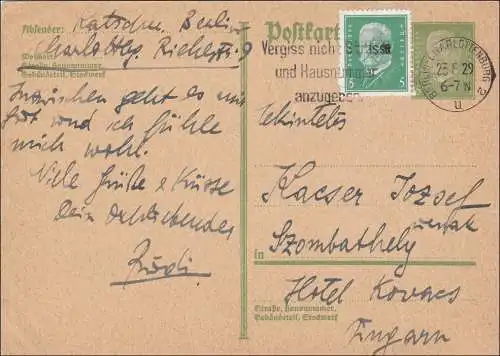 Absender: Katscher, Berlin
Charlttbg. Riehlstr. 9
Wohnort
Straße, Hausnummer,
Gebäudeteil, Stockwerk
Inzwischen geht es mir
gut und ich fühle
mich wohl.
Viele Grüße & Küsse
Dein Dich liebender
Rudi
Postkarte
Vergiss nicht Strasse
und Hausnummer
anzugeben
5
5
BERLIN-CHARLOTTENBURG 2
29
6-7 N
u
Tekintetes
Kacser Jozsef
urnak
in
Szombathely
Hotel Kovacs
Straße, Hausnummer,
Gebäudeteil, Stockwerk
Ungarn